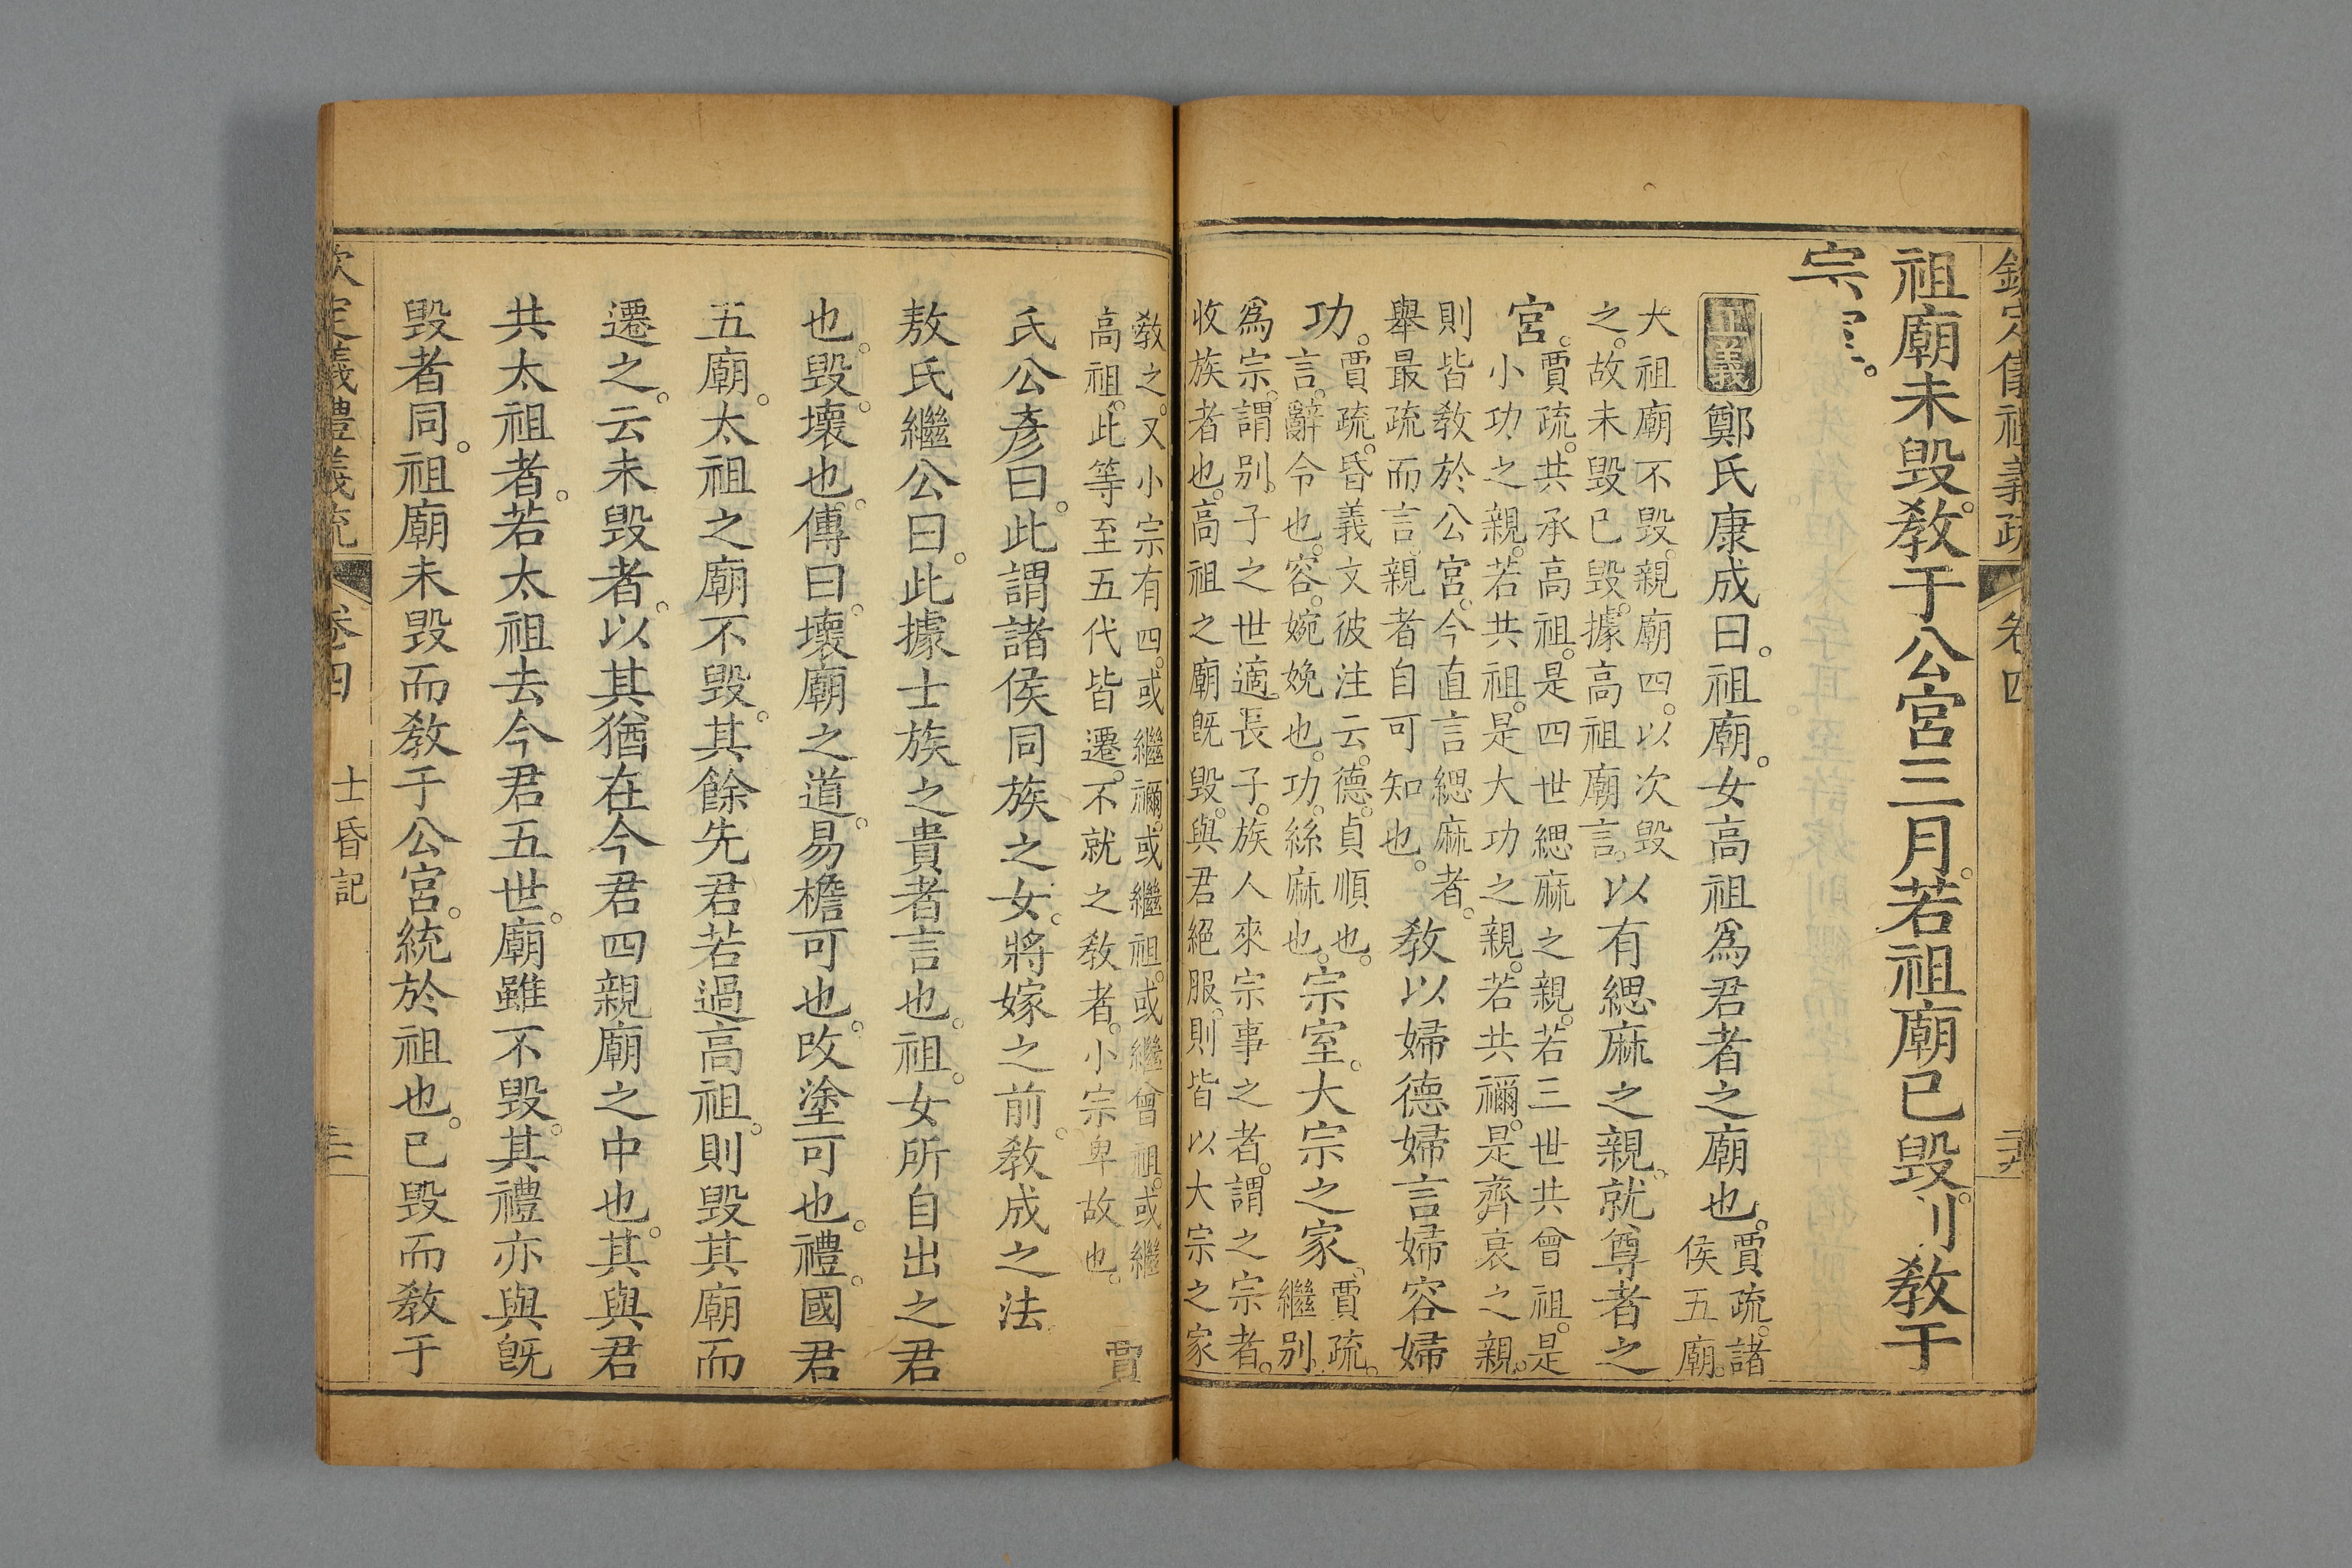 祖廟未毀。教于公宮三月。若祖廟已毀。則教于
宗
正義 鄭氏康成曰。祖廟。女高祖爲君者之廟也。賈疏。諸
侯五廟。
大祖廟不毀。親廟四。以次毀
之。故未毀已毀。據高祖廟言。以有緦麻之親。就尊者之
宮。賈疏。共承高祖。是四世緦麻之親。若三世共曾祖。是
小功之親。若共祖。是大功之親。若共禰。是齊衰之親。
則皆教於公宮。今直言緦麻者。
舉最疏而言。親者自可知也。教以婦德婦言婦容婦
功。賈疏。昏義文彼注云。德。貞順也。
言。辭令也。容。婉娩也。功。絲麻也。宗室。大宗之家。賈疏。
繼別
爲宗。謂別子之世適長子。族人來宗事之者。謂之宗者。
收族者也。高祖之廟旣毀。與君絕服。則皆以大宗之家
教之。又小宗有四。或繼禰。或繼祖。或繼曾祖。或繼
高祖。此等至五代皆遷。不就之教者。小宗卑故也。 賈
氏公彥曰。此謂諸侯同族之女。將嫁之前。教成之法
敖氏繼公曰。此據士族之貴者言也。祖。女所自出之君
也。毀。壞也。傳曰。壞廟之道。易檐可也。改塗可也。禮。國君
五廟。太祖之廟不毀。其餘先君若過高祖。則毀其廟而
遷之。云未毀者。以其猶在今君四親廟之中也。其與君
共太祖者。若太祖去今君五世。廟雖不毀。其禮亦與旣
毀者同。祖廟未毀而教于公宮。統於祖也。已毀而教于
欽定儀禮義疏 卷四 士昏記
欽定儀禮義疏 卷四